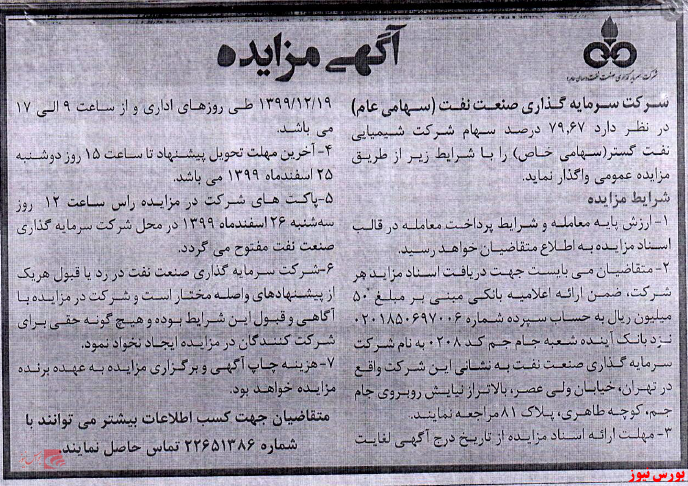 آگهی مزایده
شرکت سرمایه گذاری صنعت نفت (سهامی عام)
در نظر دارد ۷۹,۶۷ درصد سهام شرکت شیمیایی
نفت گستر(سهامی خاص) را با شرایط زیر از طریق
مزایده عمومی واگذار نماید.
شرایط مزایده
۱- ارزش پایه معامله و شرایط پرداخت معامله در قالب
اسناد مزایده به اطلاع متقاضیان خواهد رسید.
۲- متقاضیان می بایست جهت دریافت اسناد مزاید هر
شرکت، ضمن ارائه اعلامیه بانکی مبنی بر مبلغ ۵۰
میلیون ریال به حساب سپرده شماره ۰۲۰۱۸۵۰۶۹۷۰۰۶
نزد بانک آینده شعبه جام جم کد ۰۲۰۸ به نام شرکت
سرمایه گذاری صنعت نفت به نشانی این شرکت واقع
در تهران، خیابان ولی عصر، بالاتر از نیایش روبروی جام
جم، کوچه طاهری، پلاک ۸۱ مراجعه نمایند.
۳- مهلت ارائه اسناد مزایده از تاریخ درج آگهی لغایت
۱۳۹۹/۱۲/۱۹ طی روزهای اداری و از ساعت ۹ الی ۱۷
می باشد.
۴- آخرین مهلت تحویل پیشنهاد تا ساعت ۱۵ روز دوشنبه
۲۵ اسفندماه ۱۳۹۹ می باشد.
۵- پاکت های شرکت در مزایده راس ساعت ۱۲ روز
سه‌شنبه ۲۶ اسفندماه ۱۳۹۹ در محل شرکت سرمایه گذاری
صنعت نفت مفتوح می گردد.
۶- شرکت سرمایه گذاری صنعت نفت در رد یا قبول هریک
از پیشنهادهای واصله مختار است و شرکت در مزایده با
آگاهی و قبول این شرایط بوده و هیچ گونه حقی برای
شرکت کنندگان در مزایده ایجاد نخواد نمود.
۷- هزینه چاپ آگهی و برگزاری مزایده به عهده برنده
مزایده خواهد بود.
متقاضیان جهت کسب اطلاعات بیشتر می توانند با
شماره ۲۲۶۵۱۳۸۶ تماس حاصل نمایند.
بورس نیوز